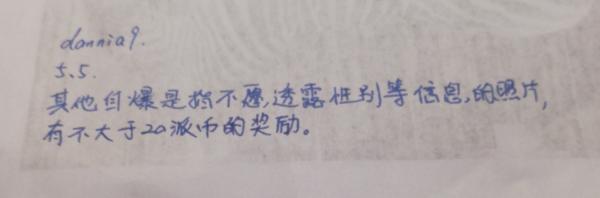 dannia9.
5.5.
其他自爆是指不愿,透露性别等信息,的照片,
有不大于20派币的奖励。